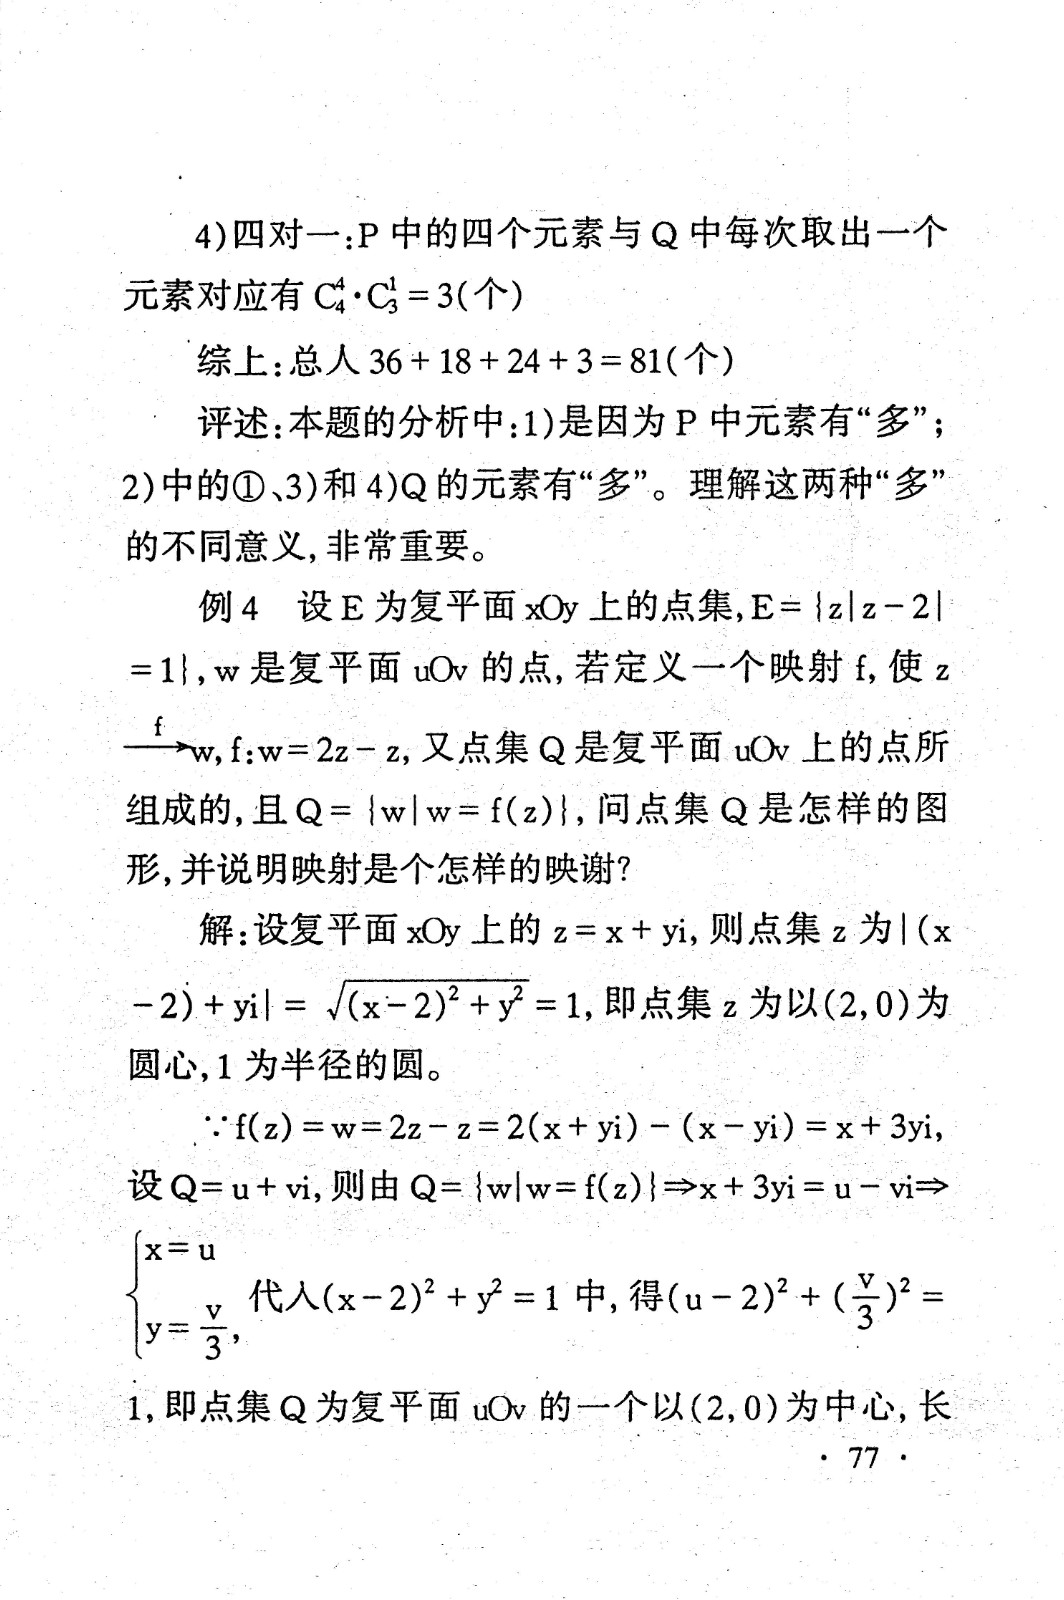 4)四对一:P 中的四个元素与 Q 中每次取出一个
元素对应有 C₄⁴·C₃¹=3(个)
综上:总人 36+18+24+3=81(个)
评述:本题的分析中:1)是因为 P 中元素有“多”;
2)中的①、3)和 4)Q 的元素有“多”。理解这两种“多”
的不同意义,非常重要。
例 4 设 E 为复平面 xOy 上的点集,E={z|z-2|
=1},w 是复平面 uOv 的点,若定义一个映射 f,使 z
—f→w,f:w=2z-z,又点集 Q 是复平面 uOv 上的点所
组成的,且 Q={w|w=f(z)},问点集 Q 是怎样的图
形,并说明映射是个怎样的映谢?
解:设复平面 xOy 上的 z=x+yi,则点集 z 为|(x
-2)+yi|=√((x-2)²+y²)=1,即点集 z 为以(2,0)为
圆心,1 为半径的圆。
∵f(z)=w=2z-z=2(x+yi)-(x-yi)=x+3yi,
设 Q=u+vi,则由 Q={w|w=f(z)}⇒x+3yi=u-vi⇒
{x=u
y=v/3, 代入(x-2)²+y²=1 中,得(u-2)²+(v/3)²=
1,即点集 Q 为复平面 uOv 的一个以(2,0)为中心,长
· 77 ·